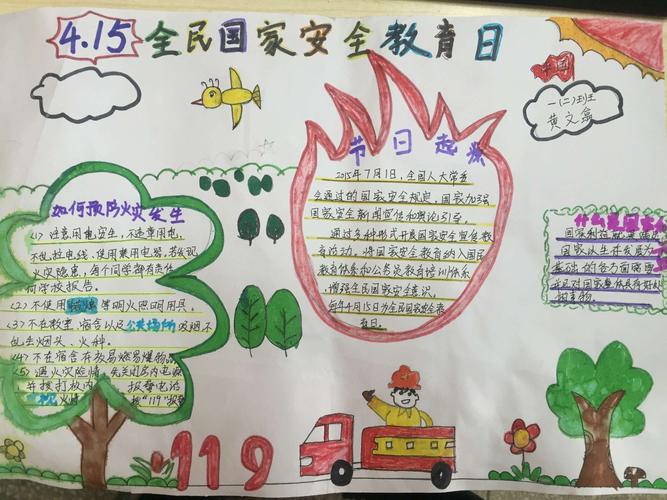 4.15 全民国家安全教育日
中国
一(二)班
黄文
节日起源
2015年7月1日,全国人大常委
会通过的国家安全规定,国家加强
国家安全新闻宣传和舆论引导。
通过多种形式开展国家安全宣传教
育活动。将国家安全教育纳入国民
教育体系和公务员教育培训体系
增强全民国家安全意识。
每年4月15日为全民国家安全教
育日。
如何预防火灾发生
(1) 注意用电安全,不违章用电,
不乱拉电线、使用禁用电器,若发现
火灾隐患,每个同学都有责任
向学校报告。
(2) 不使用蜡烛等明火照明用具。
(3) 不在教室、宿舍以及公共场所吸烟不
乱丢烟头、火种。
(4) 不在宿舍存放易燃易爆物品
(5) 遇火灾险情,先关闭房内电源
并拨打校内 报警电话
火情 拨"119"报警
什么是国家
国家利益
国家以生存发展为
基础的各方面
并且对国家整体具有好处
的事物。
119